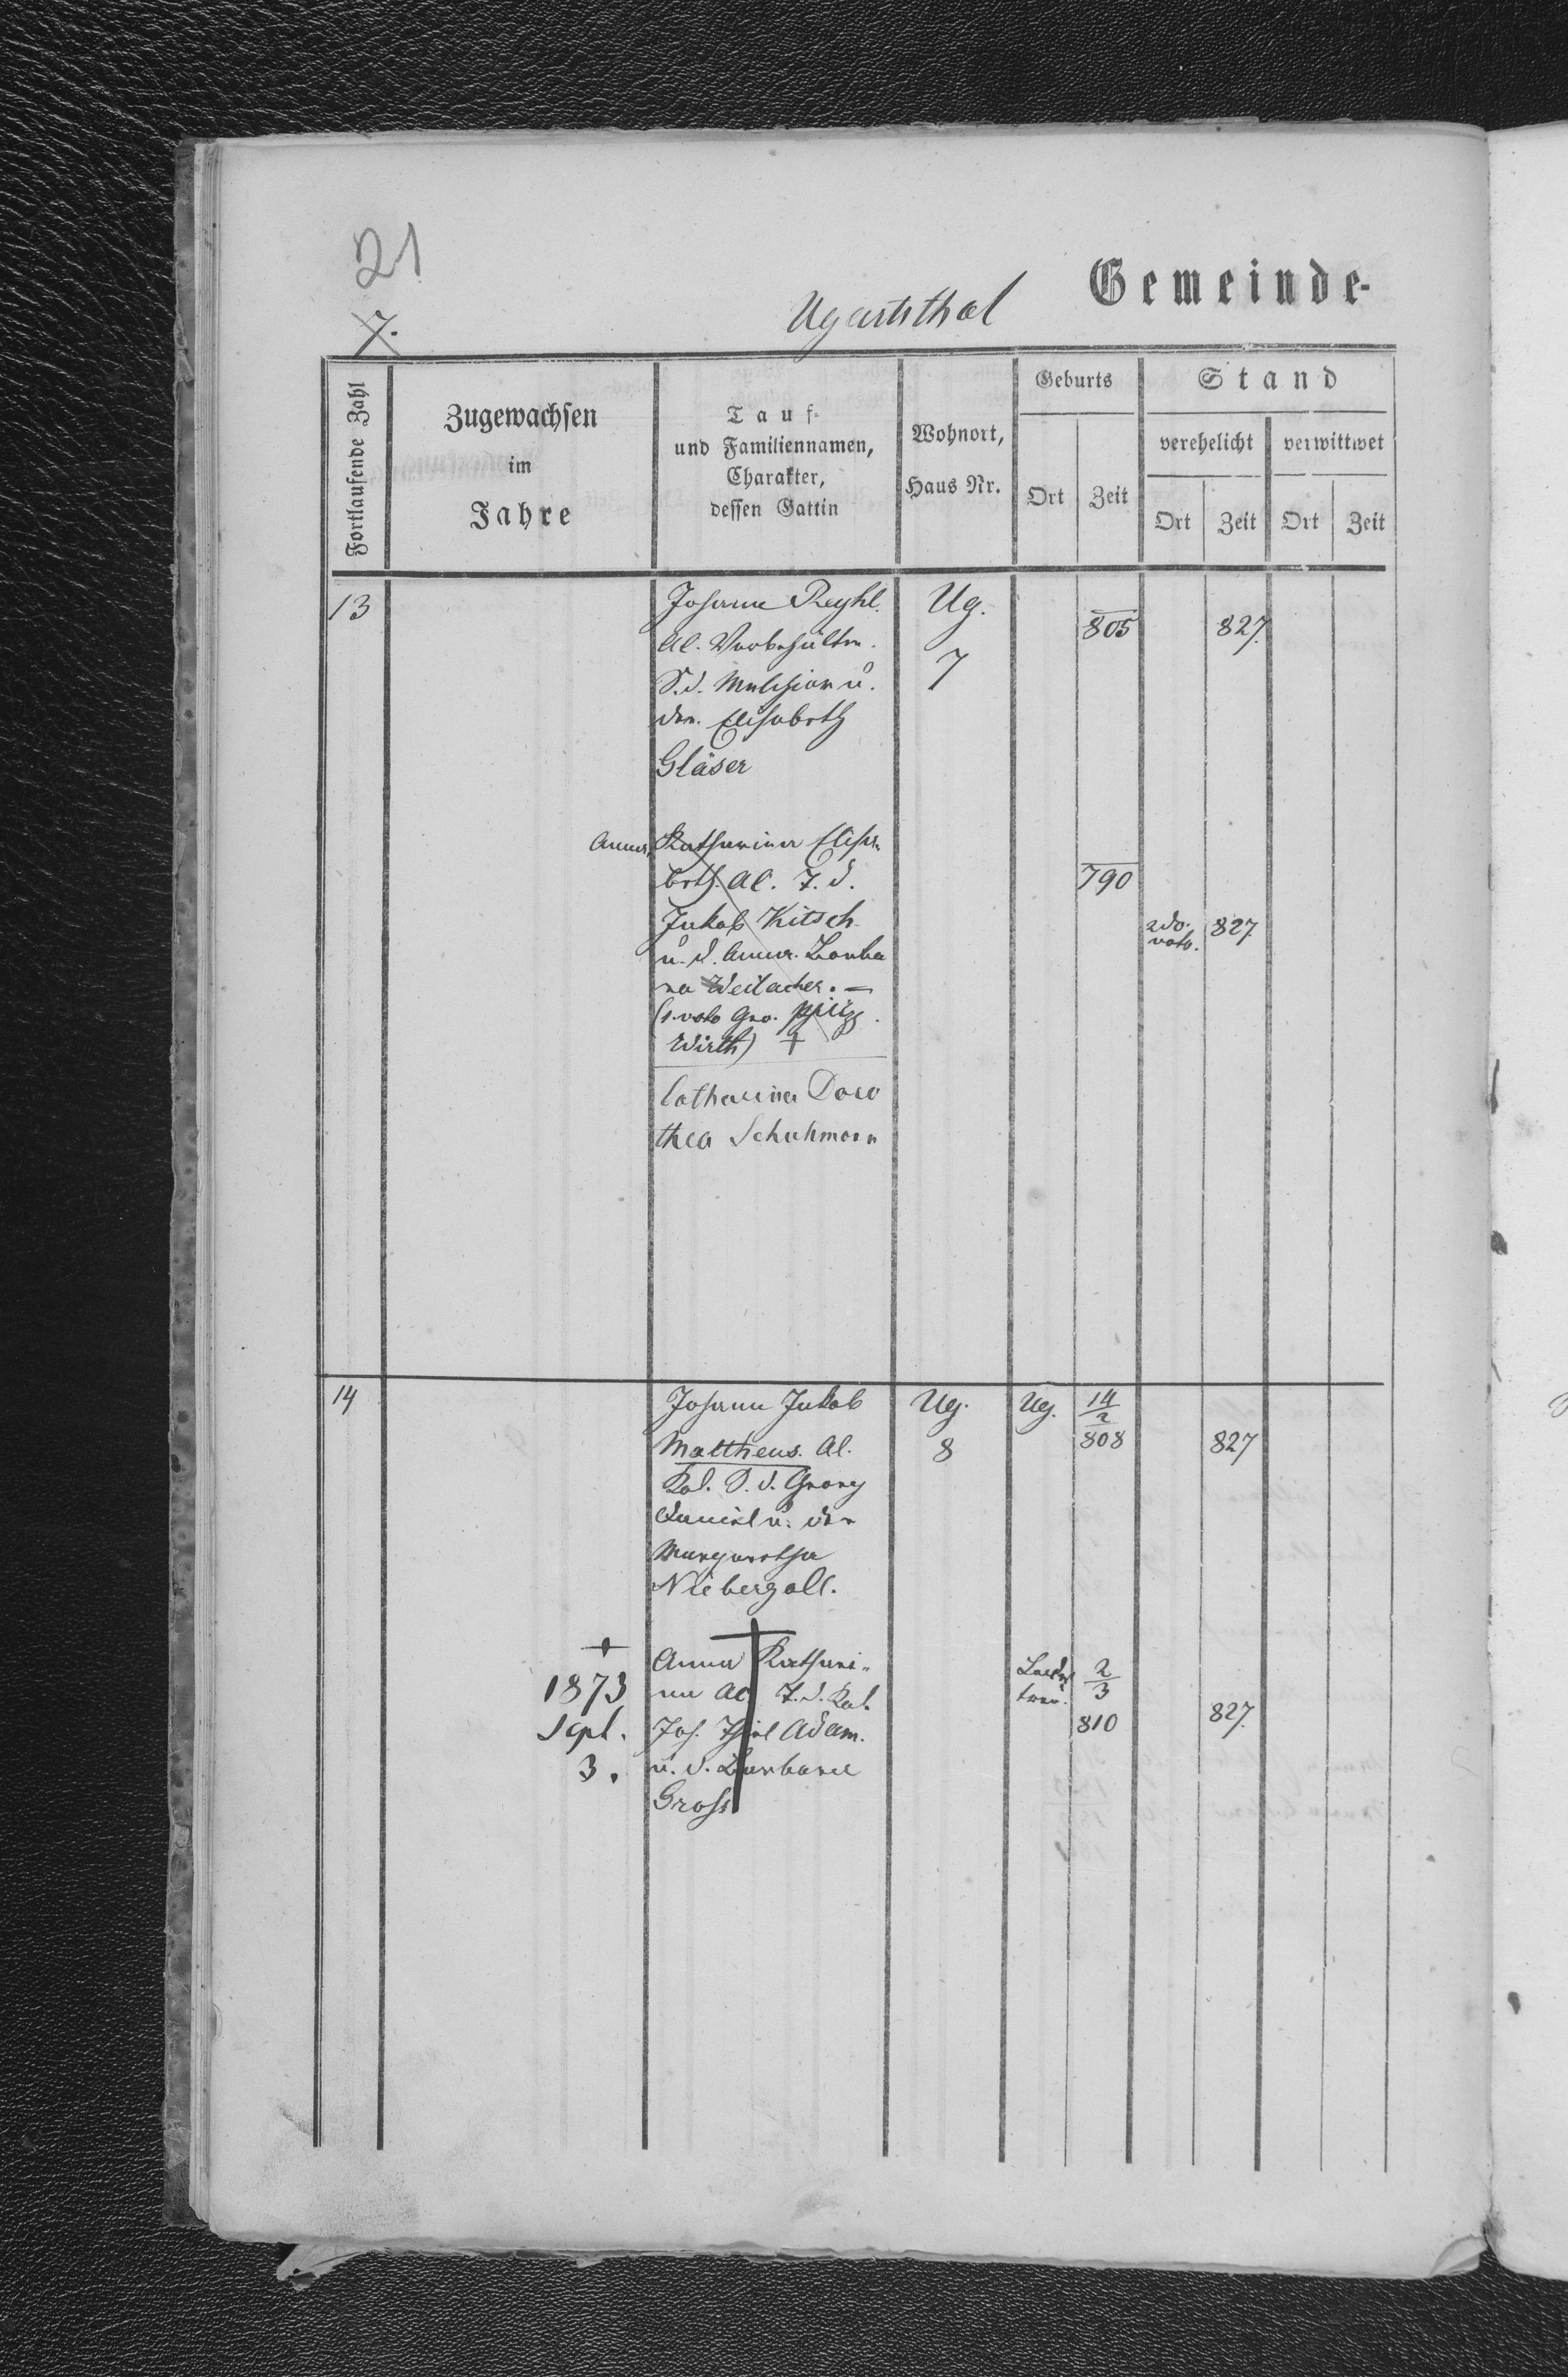 21
7.
Ugartsthal
Gemeinde-
Fortlaufende Zahl
Zugewachsen
im
Jahre
Tauf-
und Familiennamen,
Charakter,
dessen Gattin
Wohnort,
Haus Nr.
Geburts
Ort Zeit
Stand
verehelicht verwittwet
Ort Zeit Ort Zeit
13 Johann Reyhl. Ug. 805 827
Al. 7
S. d. Melchior u.
der Elisabeth
Gläser
Anna Katharina Elisa
beth. Al. T. d. 790
Jakob Kitsch 2do. voto. 827
u. d. Anna Barba
ra Weilacher. —
(1. voto Geo.
Wirth) +
Catharina Doro
thea Schuhmann
14 Johann Jakob Ug. Ug. 14/2
Mattheus. Al. 8 808 827
Kol. S. d. Georg
Daniel u. der
Margaretha
Niebergall.
+ Anna Kathari- 2/3
1873 na Al. T. d. Kol. 810 827
Sept. Joh. Adam.
3. u. d. Barbara
Gross